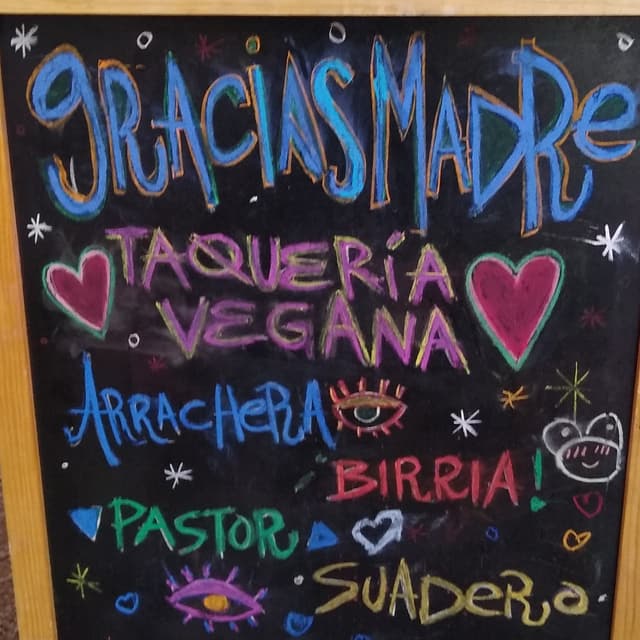 gRACIAS MADRE
TAQUERíA
VEGANA
ARRACHERA
BIRRIA!
PASTOR
SUADERO